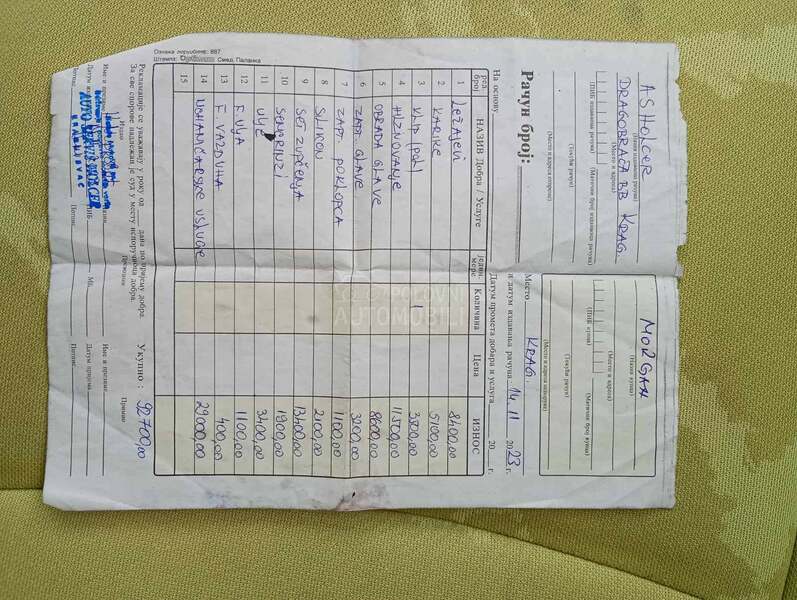 AS HOLCER
(Назив издаваоца рачуна)
DRAGOBRAĆA BB KRAG.
(Место и адреса)
(ПИБ издаваоца рачуна) (Матични број издаваоца рачуна)
(Текући рачун)
(Место и адреса огранка)
MORGAN
(Назив купца)
(Место и адреса)
(ПИБ купца) (Матични број купца)
(Текући рачун)
(Место и адреса огранка)
Рачун број:
На основу
Место KRAG.
и датум издавања рачуна 14. 11 2023 г.
Датум промета добара и услуга 20 г.
ред. број НАЗИВ Добра / Услуге једин. мере Количина Цена ИЗНОС
1 LEŽAJEVI 8400,00
2 KARIKE 5100,00
3 KLIP (POL) 1 3800,00
4 HILZNOVANJE 11.500,00
5 OBRADA GLAVE 8600,00
6 ZAPT. GLAVE 3200,00
7 ZAPT. POKLOPCA 1100,00
8 SILIKON 2100,00
9 SET ZUPČENJA 13400,00
10 SEMERINZI 1900,00
11 ULJE 3400,00
12 F. ULJA 1100,00
13 F. VAZDUHA 400,00
14 MEHANIČARSKE USLUGE 29000,00
15
Укупно: 92700,00
Рекламације се уважавају у року од дана по пријему добра.
За све спорове надлежан је суд у месту испоручиоца добра.
Издао Превезник Примио
Име и презиме Име и презиме
Датум МБ. Датум пријема
ПИБ
Потпис Потпис. Потпис.
AUTO SERVIS HOLCER
KRAGUJEVAC
Ознака поруџбине: 887
Штампа: Смед. Паланка
POLOVNI
AUTOMOBILI